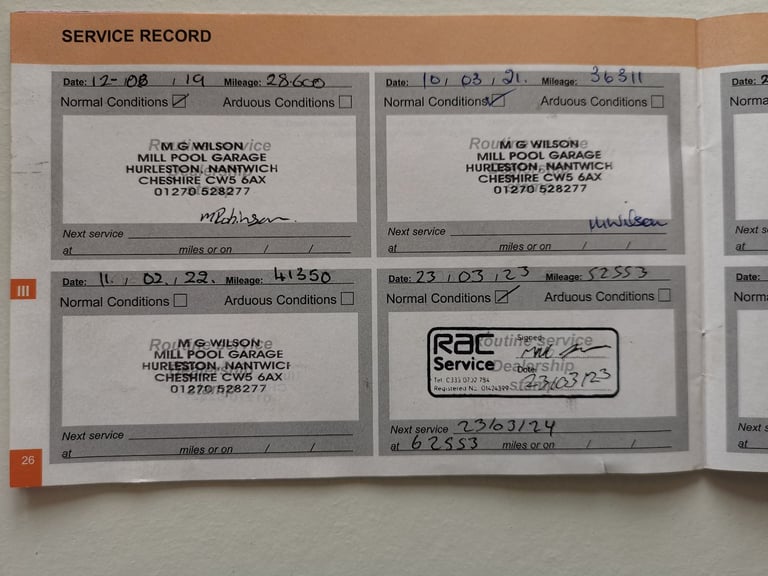 SERVICE RECORD
Date: 12-08, 19 Mileage: 28600
Normal Conditions Arduous Conditions
Routine Service
M G WILSON
MILL POOL GARAGE
HURLESTON, NANTWICH
CHESHIRE CW5 6AX
01270 528277
MRobinson.
Next service
at miles or on / /
Date: 10, 03, 21. Mileage: 36311
Normal Conditions Arduous Conditions
Routine Service
M G WILSON
MILL POOL GARAGE
HURLESTON, NANTWICH
CHESHIRE CW5 6AX
01270 528277
MWilson
Next service
at miles or on / /
III
Date: 11. , 02. , 22. Mileage: 41350
Normal Conditions Arduous Conditions
Routine Service
M G WILSON
MILL POOL GARAGE
HURLESTON, NANTWICH
CHESHIRE CW5 6AX
01270 528277
Next service
at miles or on / /
Date: 23, 03, 23 Mileage: 52553
Normal Conditions Arduous Conditions
Routine Service
Dealership
stamp
RAC
Service
Signed
Date
23/03/23
Next service 23/03/24
at 62553 miles or on / /
26
Date:
Norma
Next s
at
Date:
Norma
Next s
at